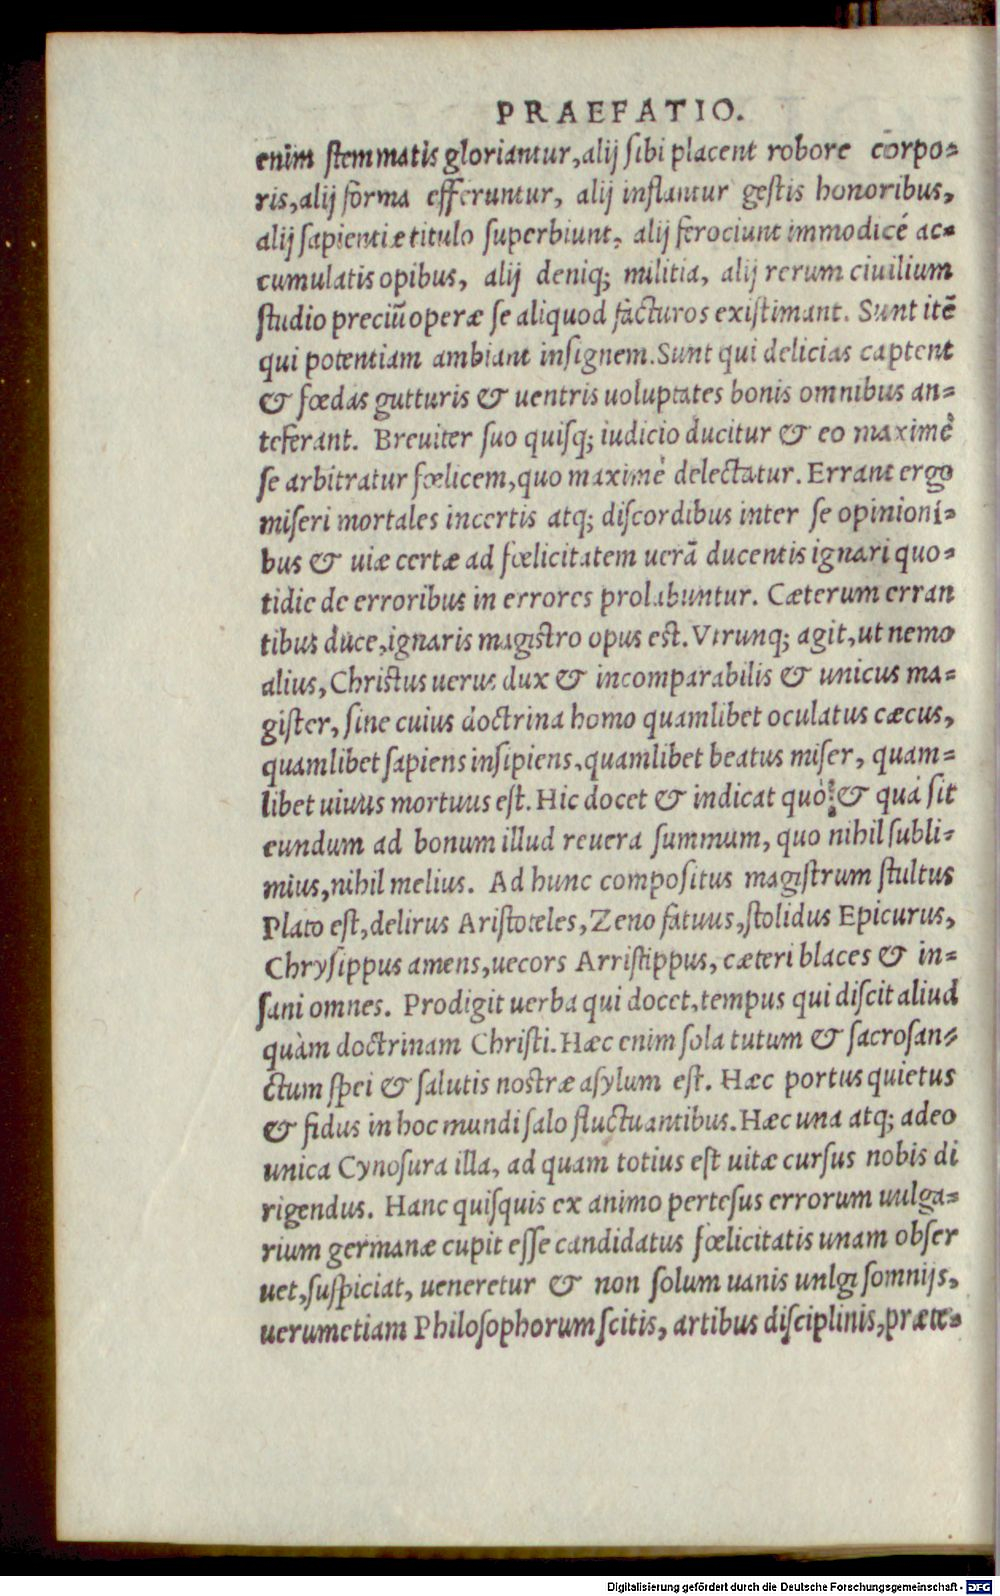 PRAEFATIO.
enim stemmatis gloriantur, alij sibi placent robore corpo-
ris, alij forma efferuntur, alij inflantur gestis honoribus,
alij sapientiæ titulo superbiunt, alij ferociunt immodicé ac-
cumulatis opibus, alij deniq; militia, alij rerum ciuilium
studio preciũ operæ se aliquod facturos existimant. Sunt itẽ
qui potentiam ambiant insignem. Sunt qui delicias captent
& fœdas gutturis & uentris uoluptates bonis omnibus an-
teferant. Breuiter suo quisq; iudicio ducitur & eo maximè
se arbitratur fœlicem, quo maximè delectatur. Errant ergo
miseri mortales incertis atq; discordibus inter se opinioni-
bus & uiæ certæ ad fœlicitatem uerã ducentis ignari quo-
tidie de erroribus in errores prolabuntur. Cæterum erran
tibus duce, ignaris magistro opus est. Vtrunq; agit, ut nemo
alius, Christus uerus dux & incomparabilis & unicus ma-
gister, sine cuius doctrina homo quamlibet oculatus cæcus,
quamlibet sapiens insipiens, quamlibet beatus miser, quam-
libet uiuus mortuus est. Hic docet & indicat quò & quà sit
eundum ad bonum illud reuera summum, quo nihil subli-
mius, nihil melius. Ad hunc compositus magistrum stultus
Plato est, delirus Aristoteles, Zeno fatuus, stolidus Epicurus,
Chrysippus amens, uecors Arristippus, cæteri blaces & in-
sani omnes. Prodigit uerba qui docet, tempus qui discit aliud
quàm doctrinam Christi. Hæc enim sola tutum & sacrosan-
ctum spei & salutis nostræ asylum est. Hæc portus quietus
& fidus in hoc mundi salo fluctuantibus. Hæc una atq; adeo
unica Cynosura illa, ad quam totius est uitæ cursus nobis di
rigendus. Hanc quisquis ex animo pertesus errorum uulga-
rium germanæ cupit esse candidatus fœlicitatis unam obser
uet, suspiciat, ueneretur & non solum uanis uulgi somnijs,
uerumetiam Philosophorum scitis, artibus disciplinis, præte-
Digitalisierung gefördert durch die Deutsche Forschungsgemeinschaft - DFG